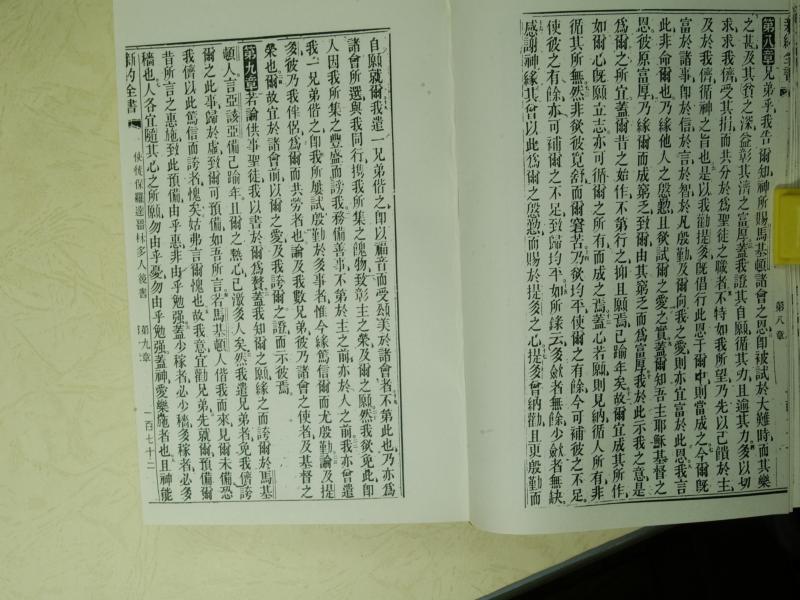 第八章兄弟乎我告爾知神所賜馬基頓諸會之恩卽被試於大難時而其樂
之甚及其貧之深益彰其濟之富厚蓋我證其自願循其力且逾其力多以切
求求我儕受其捐而共分於爲聖徒之職者不特如我所望乃先以己饋於主
及於我儕循神之旨也是以我勸提多旣倡行此恩于爾中則當成之今爾旣
富於諸事卽於信於言於智於凡殷勤及爾向我之愛則亦宜富於此恩我言
此非命爾也乃緣他人之慇懃且欲試爾之愛之實蓋爾知吾主耶穌基督之
恩彼原富厚乃緣爾而成窮乏致爾由其窮乏而爲富厚我於此示我之意是
爲爾之所宜蓋爾昔之始作不第行之抑且願焉已踰年矣故爾宜成其所作
如爾心旣願立志亦可循爾之所有而成之焉蓋心若願則見納循人所有非
循其所無然非欲彼寛舒而爾窘苦乃欲均平使爾之有餘今可補彼之不足
使彼之有餘亦可補爾之不足致歸均平如所錄云多斂者無餘少斂者無缺
感謝神緣其曾以此爲爾之慇懃而賜於提多之心提多曾納勸且更殷勤而
第八章
自願就爾我遣一兄弟偕之卽以福音而受頌美於諸會者不第此也乃亦爲
諸會所選與我同行攜我所集之餽物致彰主之榮及爾之願然我欲免此卽
人因我所集之豐盛而謗我務備善事不第於主之前亦於人之前我亦曾遣
我一兄弟偕之卽我所屢試殷勤於多事者惟今緣篤信爾而尤殷勤論及提
多彼乃我伴侶爲爾而共勞者也論及我數兄弟彼乃諸會之使者及基督之
榮也爾故宜於諸會前以爾之愛及我誇爾之證而示彼焉
第九章若論供事聖徒我以書於爾爲贅蓋我知爾之願緣之而誇爾於馬基
頓人言亞該亞備已踰年且爾之熱心已激多人矣然我遣兄弟者免我儕誇
爾之此事歸於虛致爾可預備如吾所言若馬基頓人偕我而來見爾未備恐
我儕以此篤信而誇者愧矣姑弗言爾愧也故我意宜勸兄弟先就爾預備爾
昔所言之惠施致此預備由乎惠非由乎勉强蓋少稼者必少穡多稼者必多
穡也人各宜隨其心之所願勿由乎憂勿由乎勉强蓋神愛樂施者也且神能
新約全書
使徒保羅達哥林多人後書
第九章
一百七十二